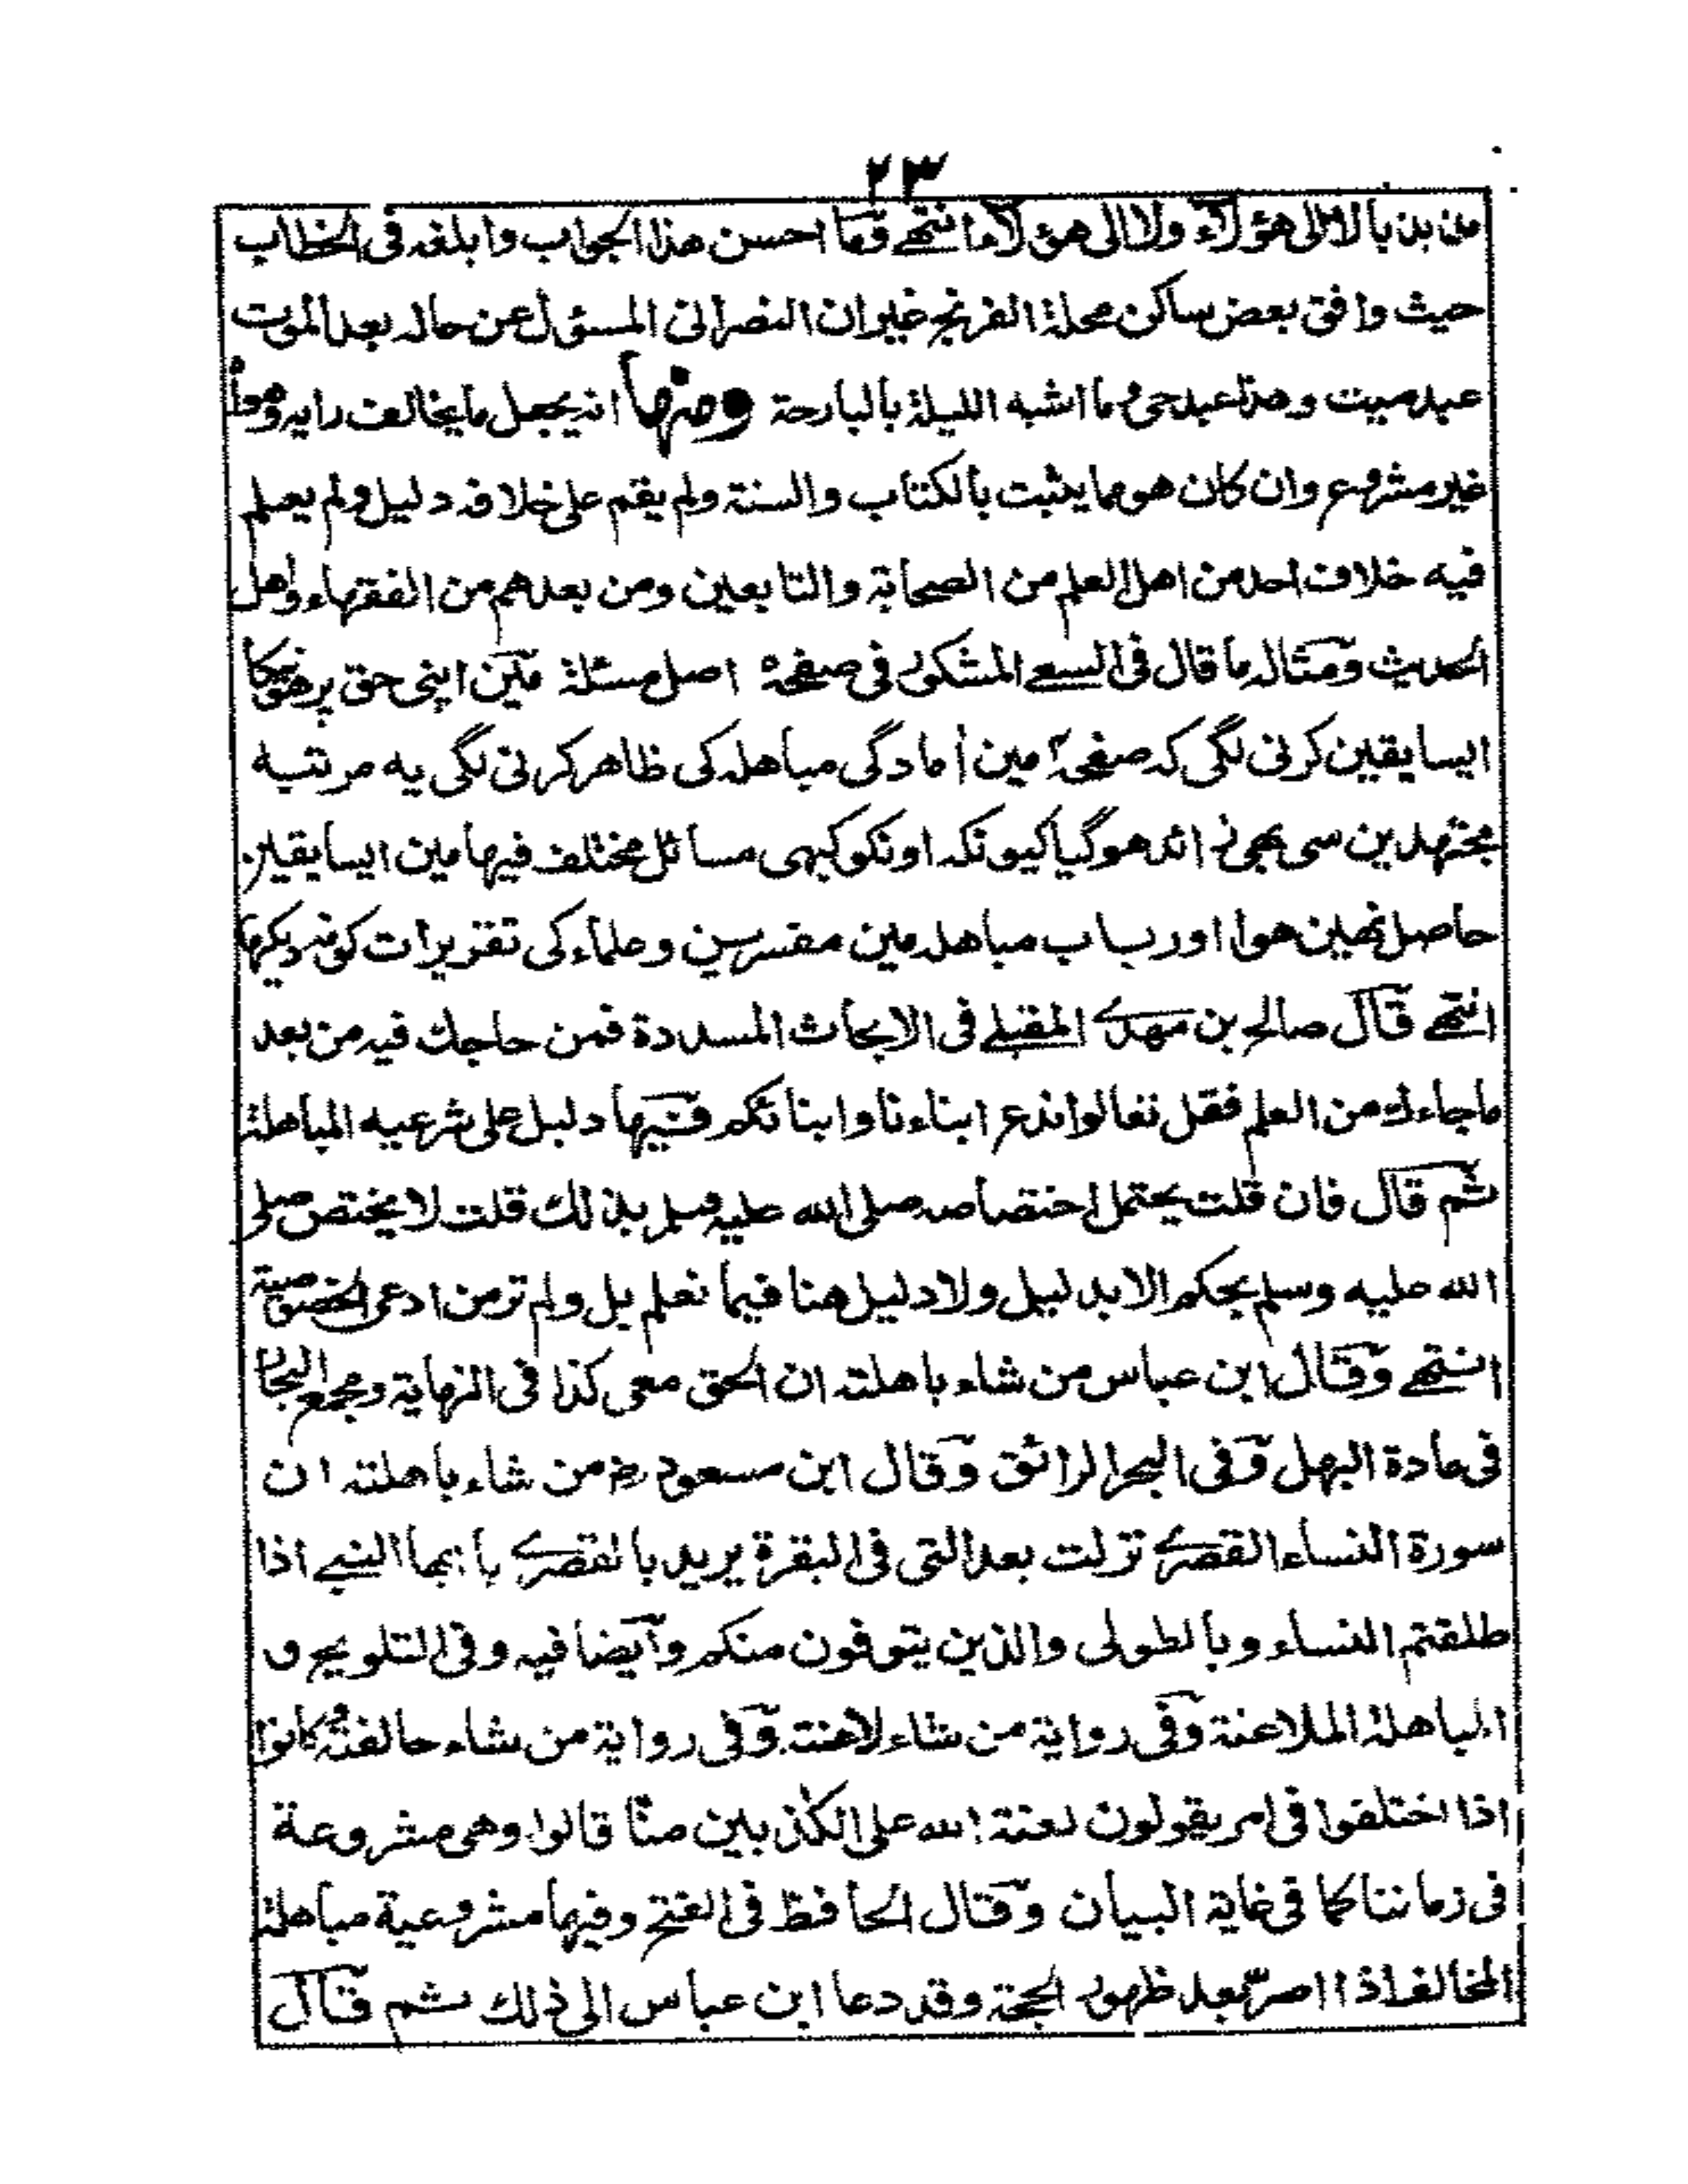 ٢٣
مذبذبا لا الى هؤلاء ولا الى هؤلاء انتهى وما احسن هذا الجواب وابلغه فى الخطاب
حيث وافق بعض ساكن محلة الفرنج غير ان النصرانى المسؤل عن حاله بعد الموت
عبد ميت وهذا عبد حى وما اشبه الليلة بالبارحة ومنها انه يجعل ما يخالف رايه وهواه
غير مشروع وان كان هو مما يثبت بالكتاب والسنة ولم يقم على خلافه دليل ولم يعلم
فيه خلاف احد من اهل العلم من الصحابة والتابعين ومن بعدهم من الفقهاء واهل
الحديث ومثاله ما قال فى السعى المشكور فى صفحة اصل مسئلة مين اپنى حق پر هونيكا
ايسا يقين كرنى لگى كه صفحه مين أمادگى مباهله كى ظاهر كرنى لگى يه مرتبه
مجتهدين سى بهى زائد هوگيا كيونكه اونكو كبهى مسائل مختلف فيها مين ايسا يقين
حاصل نهين هوا اور بباب مباهله مين مفسرين وعلماء كى تقريرات كو نه ديكها
انتهى قال صالح بن مهدى المقبلى فى الابحاث المسددة فمن حاجك فيه من بعد
ما جاءك من العلم فقل تعالوا ندع ابناءنا وابنائكم فيها دليل على شرعيه المباهلة
ثم قال فان قلت يحتمل اختصاصه صلى الله عليه وسلم بذلك قلت لا يختص صلى
الله عليه وسلم بحكم الا بدليل ولا دليل هنا فيما نعلم بل ولم نر من ادعى الخصوصية
انتهى وقال ابن عباس من شاء باهلته ان الحق معى كذا فى النهاية ومجمع البحار
فى مادة البهل وفى البحر الرائق وقال ابن مسعود رض من شاء باهلته ان
سورة النساء القصرى نزلت بعد التى فى البقرة يريد بالقصرى يا ايها النبى اذا
طلقتم النساء وبالطولى والذين يتوفون منكم وايضا فيه وفى التلويح و
المباهلة الملاعنة وفى رواية من شاء لاعنته وفى رواية من شاء حالفته كانوا
اذا اختلفوا فى امر يقولون لعنة الله على الكذبين منا قالوا وهى مشروعة
فى زماننا كما فى غاية البيان وقال الحافظ فى الفتح وفيها مشروعية مباهلة
المخالف اذا اصر بعد ظهور الحجة وقد دعا ابن عباس الى ذلك ثم قال